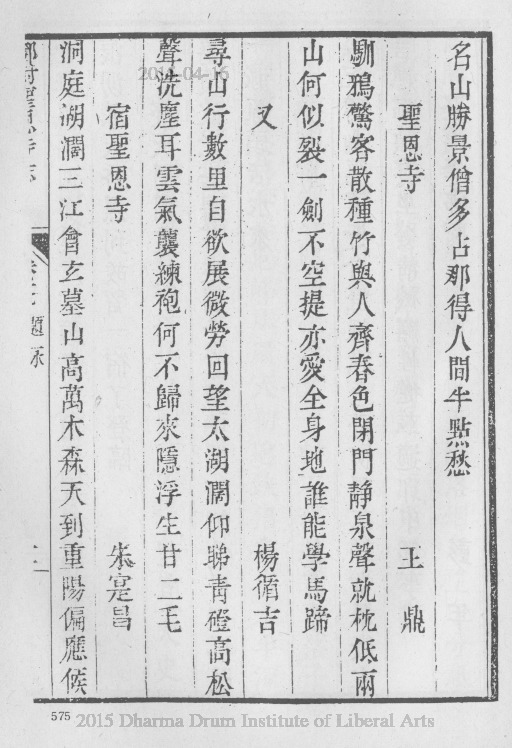 名山勝景僧多占那得人間半點愁
聖恩寺　王鼎
馴鴉驚客散種竹與人齊春色閉門靜泉聲就枕低兩
山何似裂一劍不空提亦愛全身地誰能學馬蹄
又　楊循吉
尋山行數里自欲展微勞回望太湖濶仰睇青磴高松
聲洗塵耳雲氣襲練袍何不歸來隱浮生廿二毛
宿聖恩寺　朱寔昌
洞庭湖濶三江會玄墓山高萬木森天到重陽偏應候
題詠
575
2015 Dharma Drum Institute of Liberal Arts